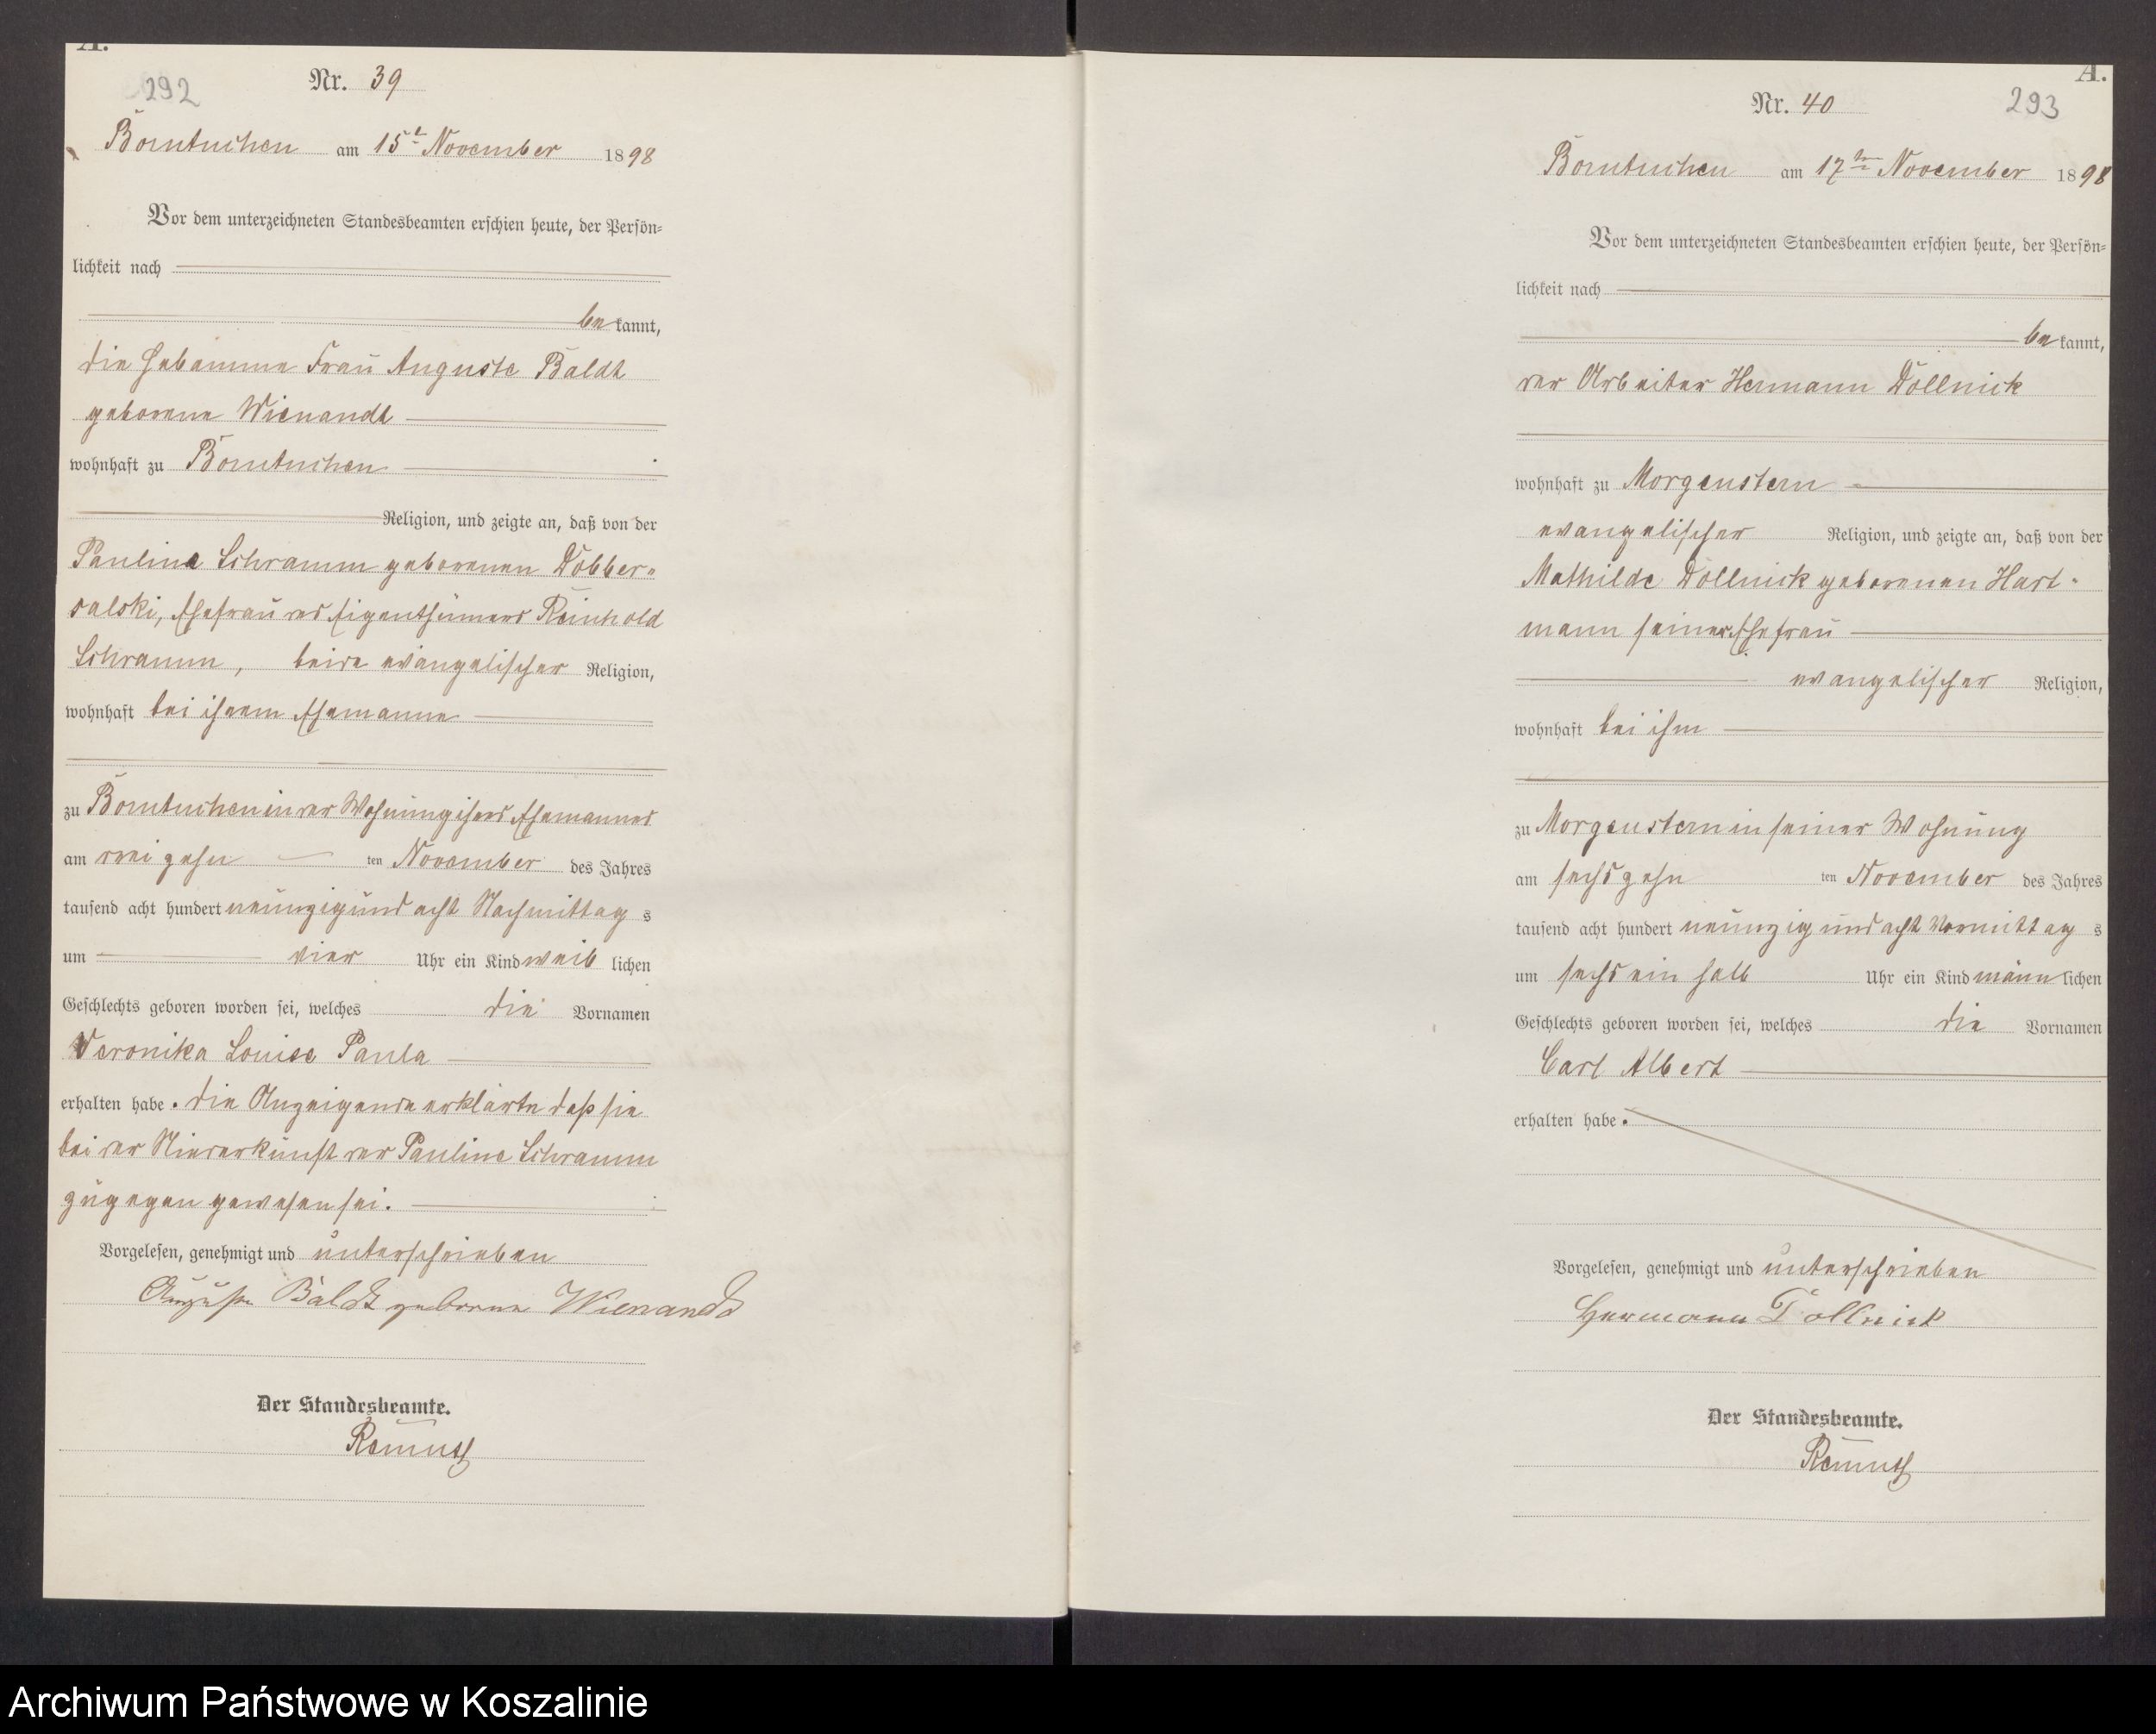 A.
292
Nr. 39
Borntuchen am 15t November 1898
Vor dem unterzeichneten Standesbeamten erschien heute, der Persön-
lichkeit nach
be kannt,
die Hebamme Frau Auguste Baldt
geborene Wienandt
wohnhaft zu Borntuchen
Religion, und zeigte an, daß von der
Pauline Schramm geborenen Dobber-
salski, Ehefrau des Eigenthümers Reinhold
Schramm, beide evangelischer Religion,
wohnhaft bei ihrem Ehemanne
zu Borntuchen in der Wohnung ihres Ehemannes
am dreizehn ten November des Jahres
tausend acht hundert neunzig und acht Nachmittag s
um vier Uhr ein Kind weib lichen
Geschlechts geboren worden sei, welches die Vornamen
Veronika Louise Paula
erhalten habe. Die Anzeigende erklärte daß sie
bei der Niederkunft der Pauline Schramm
zugegen gewesen sei.
Vorgelesen, genehmigt und unterschrieben
Auguste Baldt geborene Wienandt
Der Standesbeamte.
A.
Nr. 40
293
Borntuchen am 17ten November 1898
Vor dem unterzeichneten Standesbeamten erschien heute, der Persön-
lichkeit nach
be kannt,
der Arbeiter Hermann Dollnick
wohnhaft zu Morgenstern
evangelischer Religion, und zeigte an, daß von der
Mathilde Dollnick geborenen Hart-
mann seiner Ehefrau
evangelischer Religion,
wohnhaft bei ihm
zu Morgenstern in seiner Wohnung
am sechszehn ten November des Jahres
tausend acht hundert neunzig und acht Vormittag s
um sechs ein halb Uhr ein Kind männ lichen
Geschlechts geboren worden sei, welches die Vornamen
Carl Albert
erhalten habe.
Vorgelesen, genehmigt und unterschrieben
Hermann Dollnick
Der Standesbeamte.
Archiwum Państwowe w Koszalinie